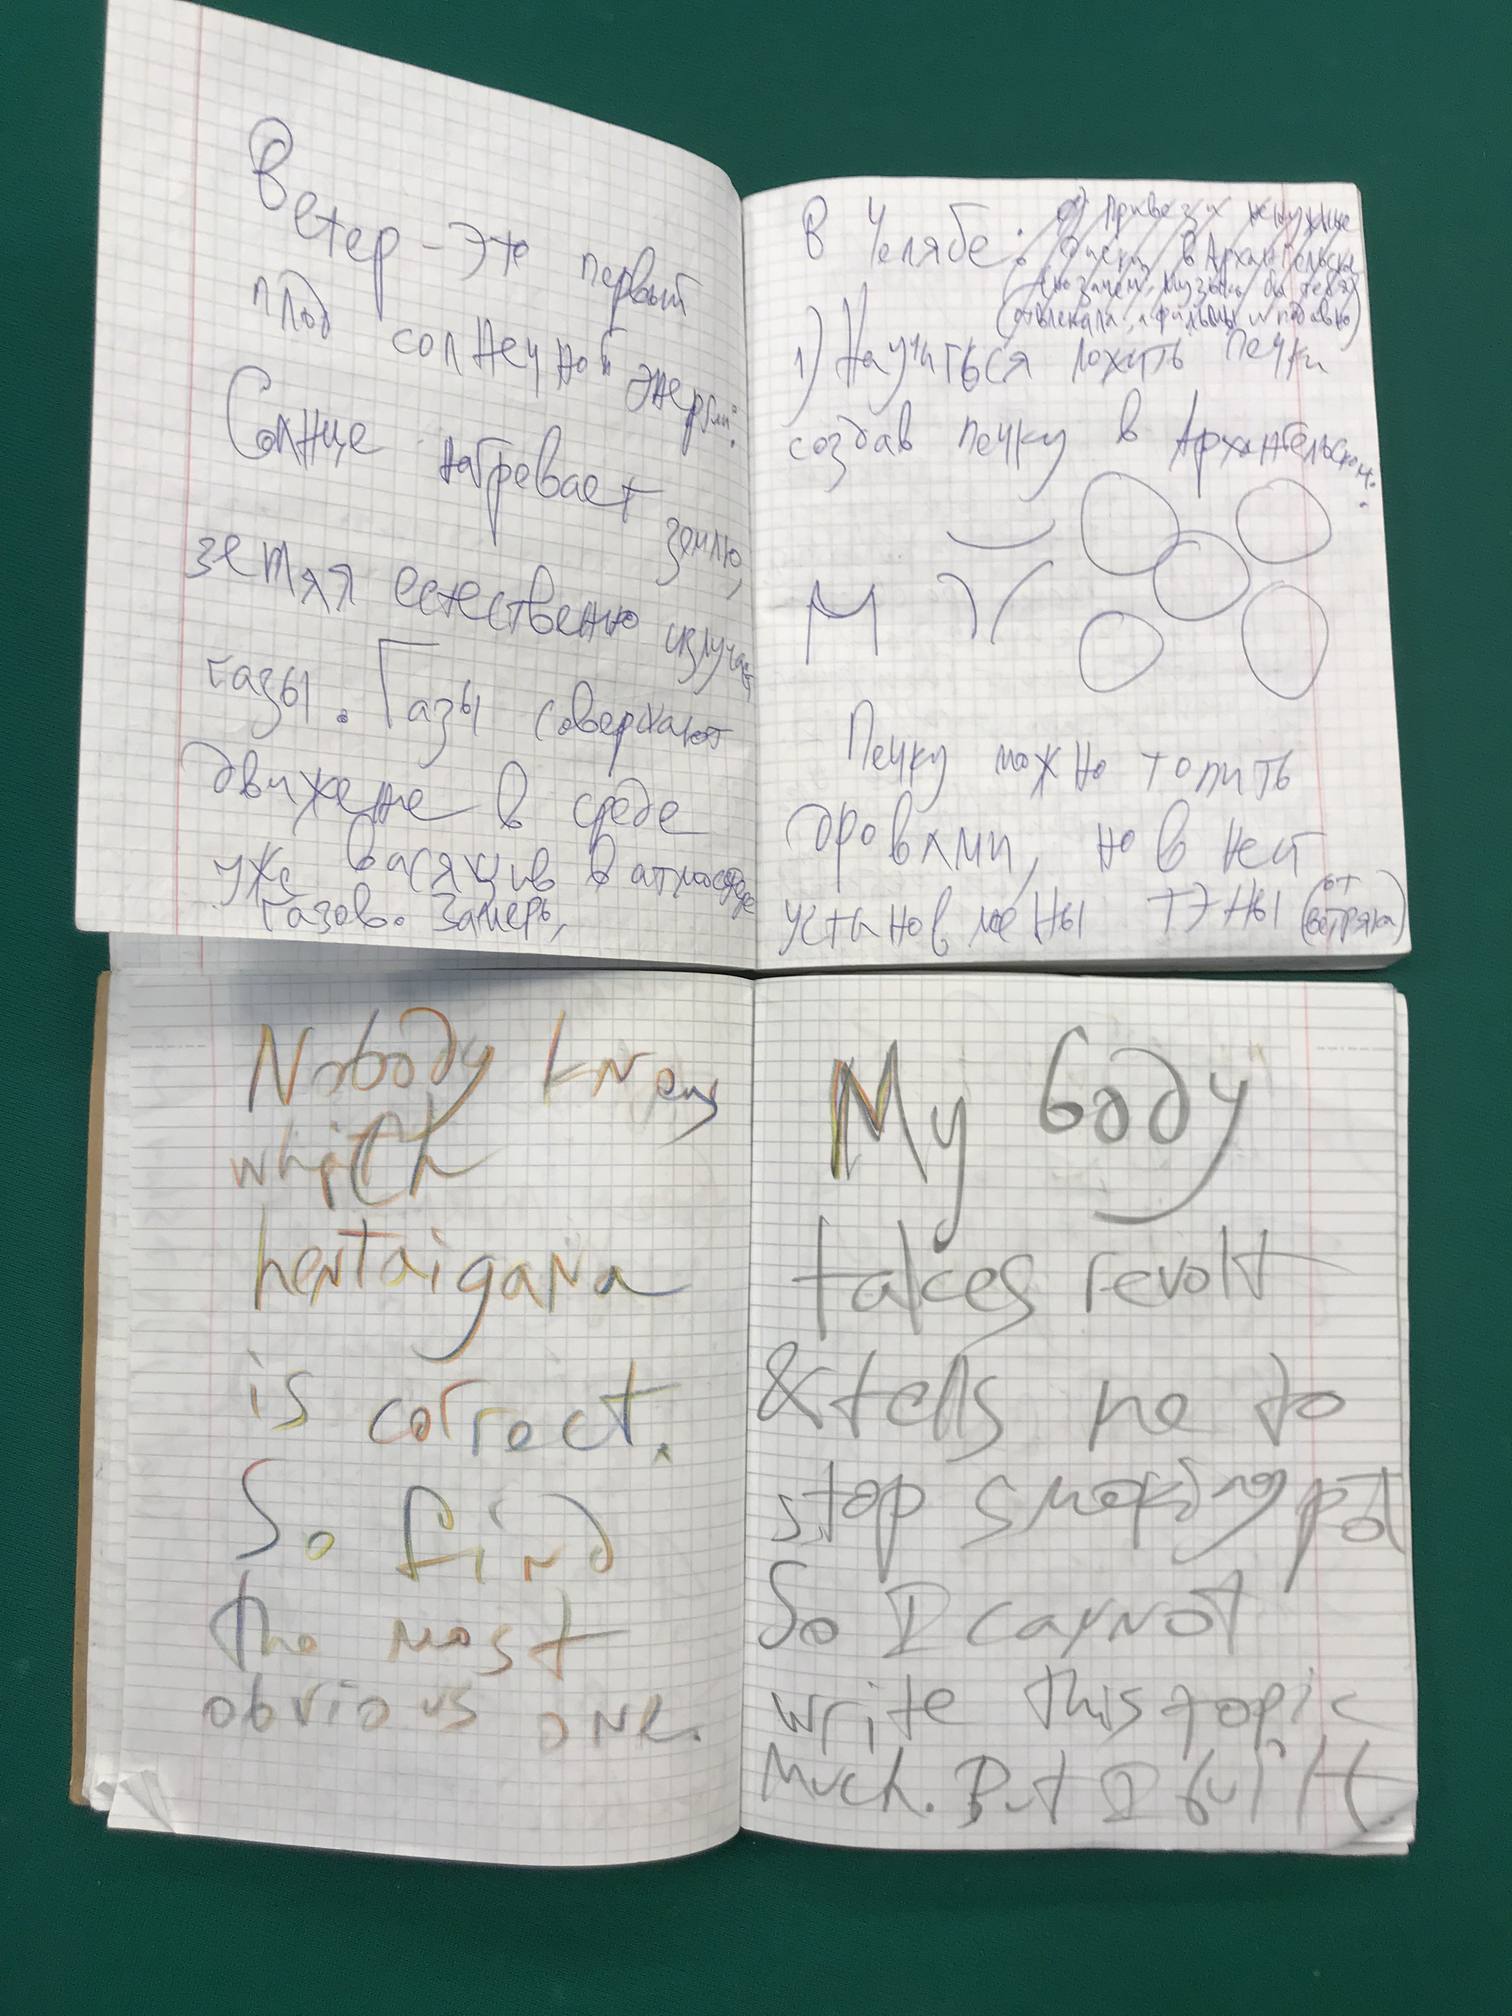 Ветер - это первый
плод солнечной энергии:
Солнце нагревает землю,
земля естественно излучает
газы. Газы совершают
движение в среде
уже висящив в атмосфере
газов. Замерь,
В Челябе: 0) Привези ненужные
диски в Архангельск
музыка бы тебя
отвлекала, а фильмы и подавно)
1) Научиться ложить печки
создав печку в Архангельском:
М
Печку можно топить
дровами, но в ней
установлены ТЭНы (от
ветряка)
Nobody knows
which
hentaigana
is correct.
So find
the most
obvious one.
My body
takes revolt
& tells me to
stop smoking pot
So I cannot
write this topic
much. But I